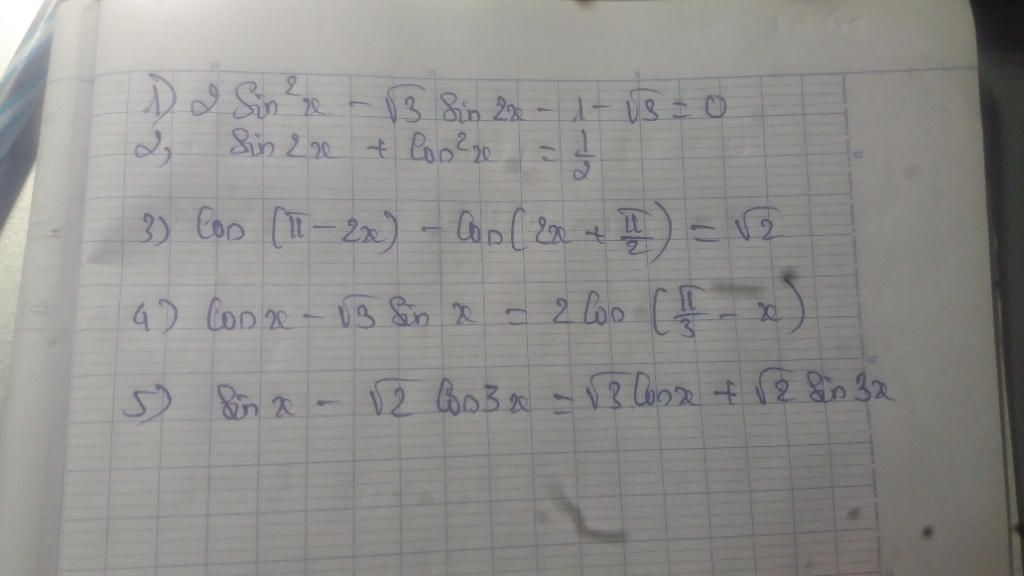 1) 2 sin²x - √3 sin 2x - 1 - √3 = 0
2, sin 2x + cos²x = 1/2
3) cos (π - 2x) - cos (2x + π/2) = √2
4) cos x - √3 sin x = 2 cos (π/3 - x)
5) sin x - √2 cos 3x = √3 cos x + √2 sin 3x